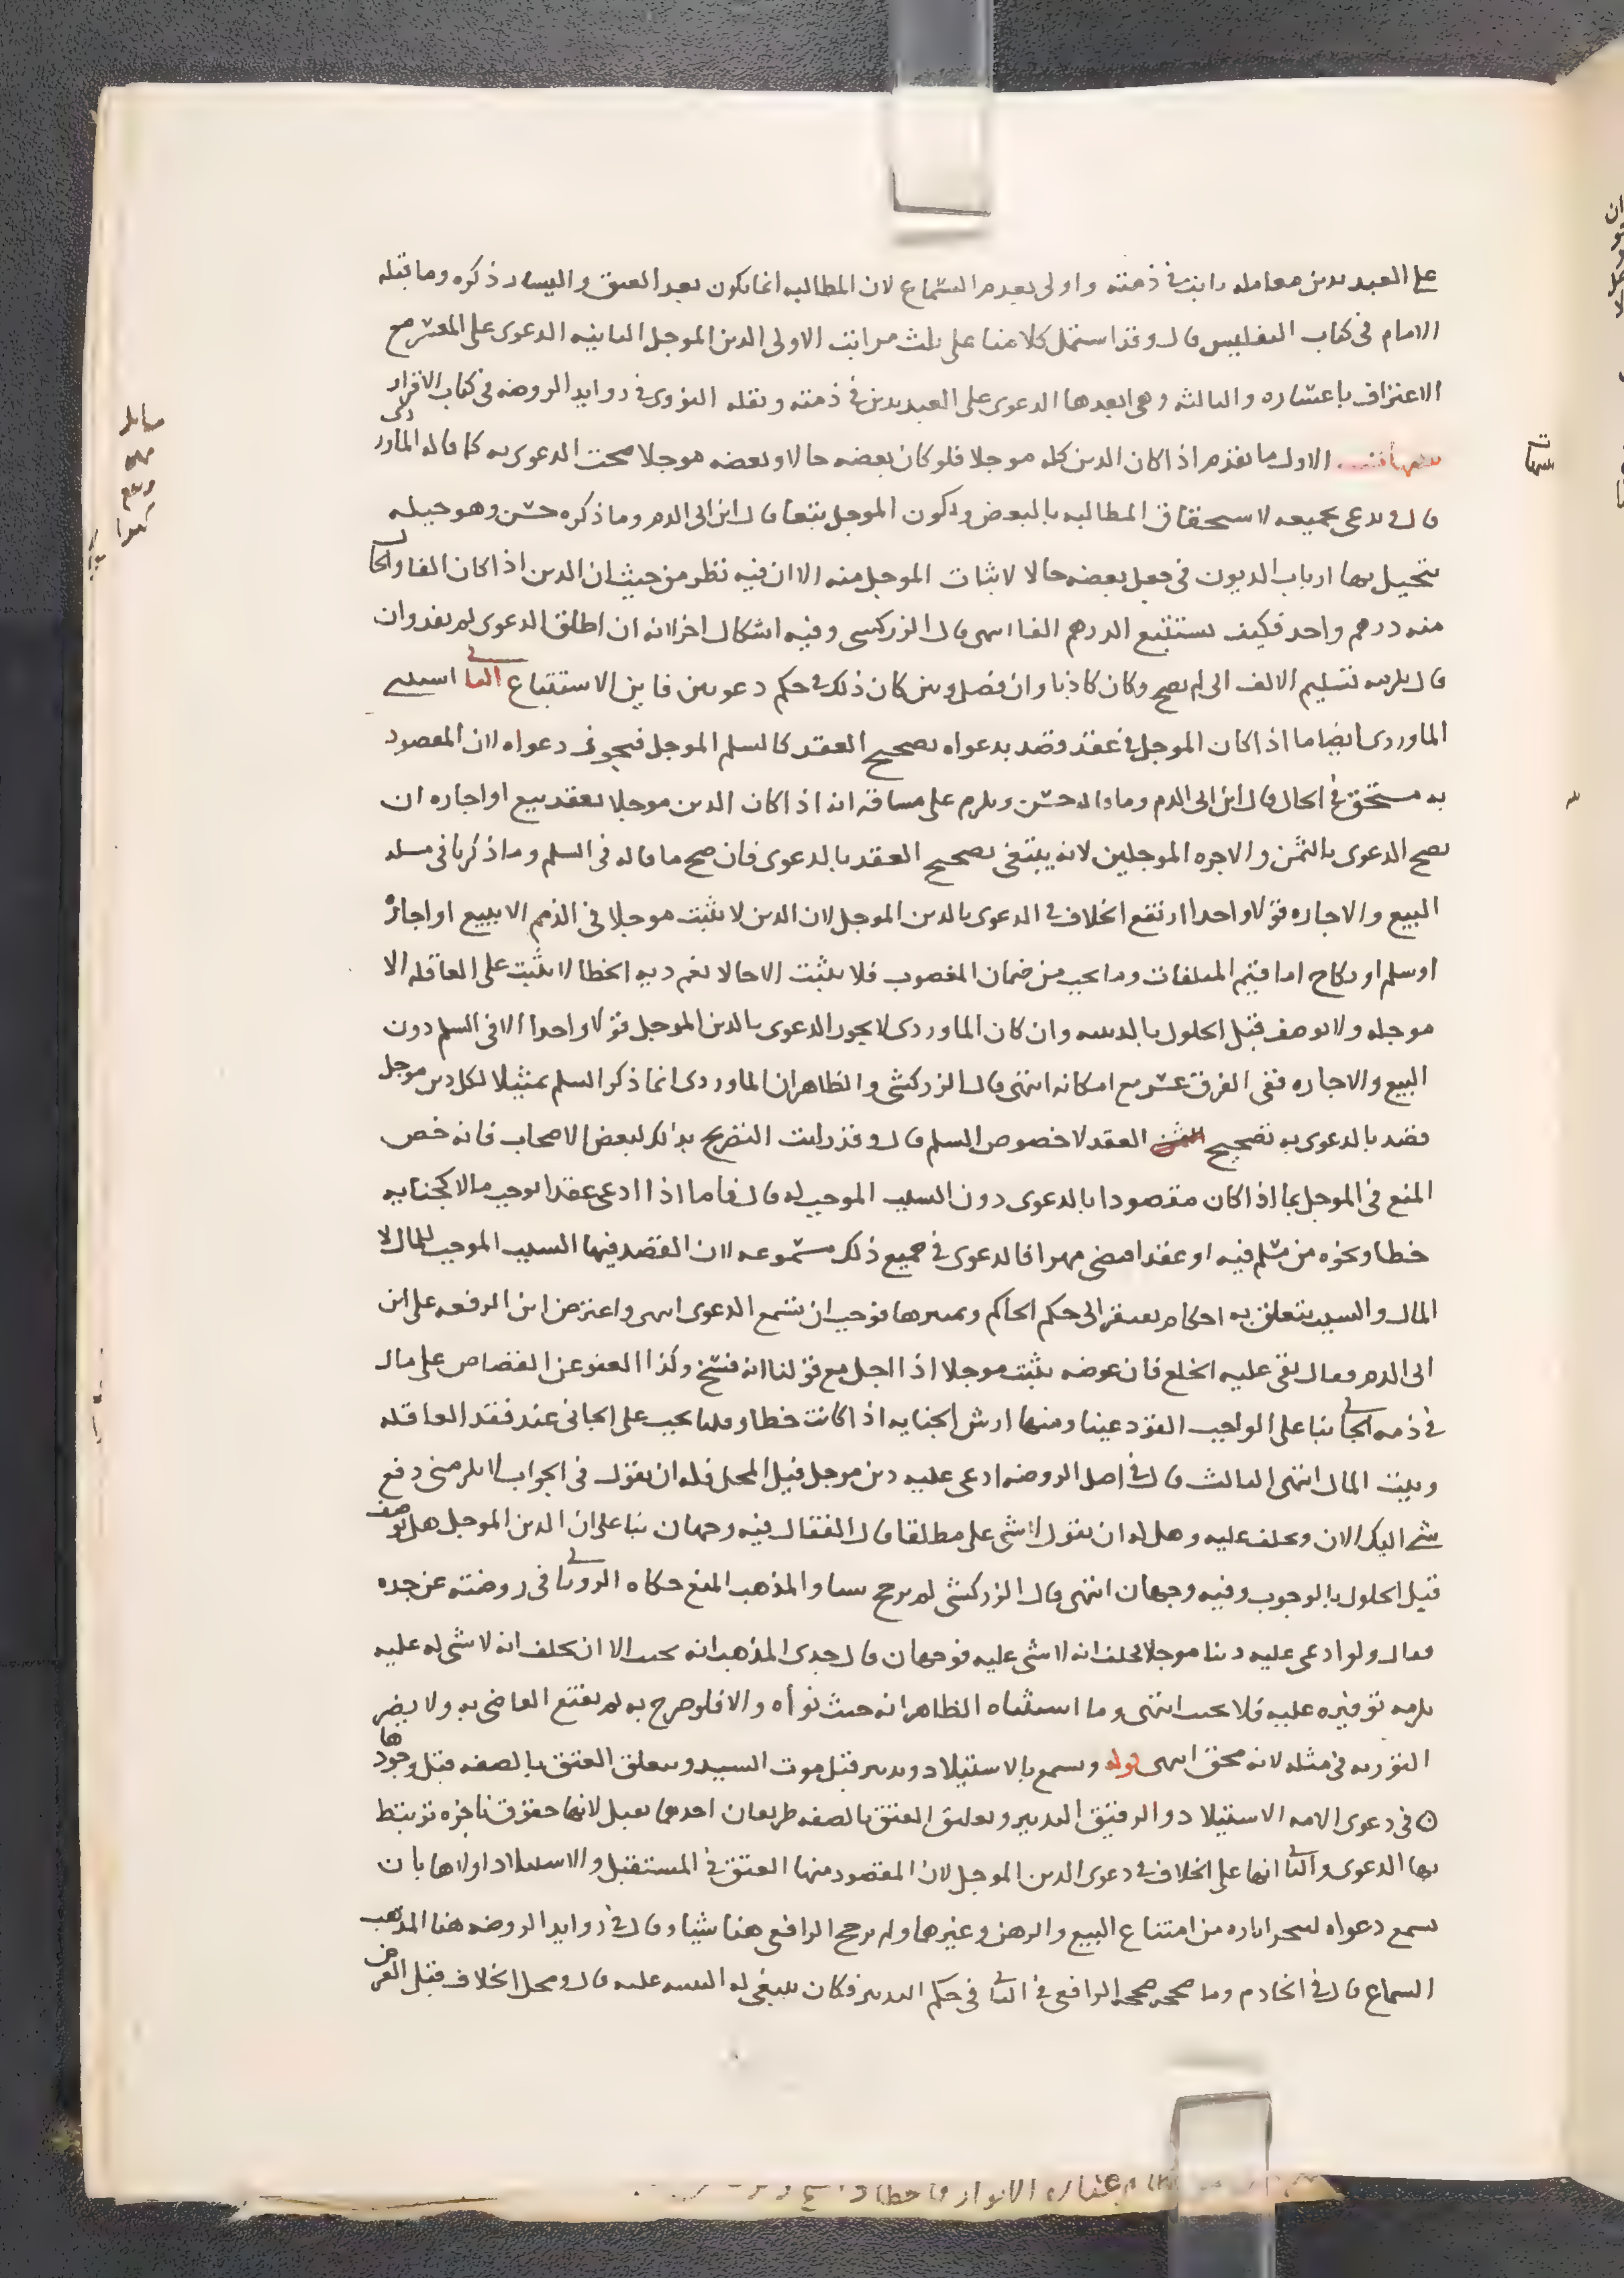 على العبد بدين معامله ثابت في ذمته واولى بعدم السماع لان المطالبه انما تكون بعد العتق واليسار ذكره وما قبله
الامام في كتاب التفليس قال وقد اشتمل كلامنا على ثلث مراتب الاولى الدين الموجل الثانيه الدعوى على المعسر مع
الاعتراف باعساره والثالثه وهي ابعدها الدعوى على العبد بدين في ذمته ونقله النووي في زوايد الروضه في كتاب الاقرار
تنبيهات الاول ما تقدم اذا كان الدين كله موجلا فلو كان بعضه حالا وبعضه موجلا صحت الدعوى به كما قاله الماوردي
قال ويدعي بجميعه لاستحقاق المطالبه بالبعض ويكون الموجل تبعا قال ابن ابي الدم وما ذكره حسن وهو حيله
يتحيل بها ارباب الديون في جعل بعضه حالا لاثبات الموجل منه الا ان فيه نظر من حيث ان الدين اذا كان الفا والحال
منه درهم واحد فكيف يستتبع الدرهم الفا انتهى قال الزركشي وفيه اشكال اخر لانه ان اطلق الدعوى لم يفد وان
قال يلزمه تسليم الالف الي لم يصح وكان كاذبا وان فصل وبين كان ذلك في حكم دعويين فاين الاستتباع الثاني استثنى
الماوردي ايضا ما اذا كان الموجل في عقد وقصد بدعواه تصحيح العقد كالسلم الموجل فيجوز دعواه لان المقصود
به مستحق في الحال قال ابن ابي الدم وما قاله حسن ويلزم على مساقه انه اذا كان الدين موجلا بعقد بيع او اجاره ان
تصح الدعوى بالثمن والاجره الموجلين لانه يبتغي تصحيح العقد بالدعوى فان صح ما قاله في السلم وما ذكرنا في مسله
البيع والاجاره قولا واحدا ارتفع الخلاف في الدعوى بالدين الموجل لان الدين لا يثبت موجلا في الذمم الا ببيع او اجارة
او سلم او نكاح اما قيم المتلفات وما يجب من ضمان المغصوب فلا يثبت الا حالا نعم ديه الخطا لا يثبت على العاقله الا
موجله ولا يوصف قبل الحلول بالدينيه وان كان الماوردي لا يجوز الدعوى بالدين الموجل قولا واحدا الا في السلم دون
البيع والاجاره ففي الفرق عسر مع امكانه انتهى قال الزركشي والظاهر ان الماوردي انما ذكر السلم تمثيلا لكل دين موجل
قصد بالدعوى به تصحيح العقد لا خصوص السلم قال وقد رايت التصريح بذلك لبعض الاصحاب فانه خص
المنع في الموجل بما اذا كان مقصودا بالدعوى دون السبب الموجب له قال فاما اذا ادعى عقدا يوجب مالا كجنايه
خطا ونحوه من مسلم فيه او عقد اقتضى مهرا فالدعوى في جميع ذلك مسموعه لان القصد فيها السبب الموجب للمال لا
المال والسبب يتعلق به احكام يفتقر الى حكم الحاكم وتمييزها فوجب ان تسمع الدعوى انتهى واعترض ابن الرفعه على ابن
ابي الدم وقال بقي عليه الخلع فان عوضه يثبت موجلا اذا اجل مع قولنا انه فسخ وكذا العفو عن القصاص على مال
في ذمه الجاني بنا على الواجب القود عينا ومنها ارش الجنايه اذا كانت خطا وقلنا يجب على الجاني عند فقد العاقله
وبيت المال انتهى الثالث قال في اصل الروضه ادعى عليه دين موجل قبل المحل فله ان يقول في الجواب لا يلزمني دفع
شي اليك الان ويحلف عليه وهل له ان يقول لا شي علي مطلقا قال القفال فيه وجهان بنا على ان الدين الموجل هل يوصف
قبل الحلول بالوجوب وفيه وجهان انتهى قال الزركشي لم يرجح شيا والمذهب المنع حكاه الروياني في روضته عن جده
فقال ولو ادعى عليه دينا موجلا فحلف انه لا شي عليه فوجهان قال جدي المذهب انه يحنث الا ان يحلف انه لا شي له عليه
يلزمه توفيره عليه فلا يحنث انتهى وما استثناه الظاهر انه حيث نواه والا فلو صرح به لم يقنع القاضي به ولا يضر
التوريه في مثله لانه محق انتهى قوله وتسمع بالاستيلاد وتدبير قبل موت السيد وتعلق العتق بالصفه قبل وجودها
في دعوى الامه الاستيلاد والرقيق التدبير وتعليق العتق بالصفه طريقان احدهما تقبل لانها حقوق ناجزه ترتبط
بها الدعوى والثاني انها على الخلاف في دعوى الدين الموجل لان المقصود منها العتق في المستقبل والاستيلاد اولاها بان
تسمع دعواه لتنجز اثاره من امتناع البيع والرهن وغيرهما ولم يرجح الرافعي هنا شيئا وقال في زوايد الروضه هنا المذهب
السماع قال في الخادم وما صححه صححه الرافعي في الثاني في حكم التدبير فكان ينبغي له التنبيه عليه قال ومحل الخلاف قبل العرض
تنبيهات